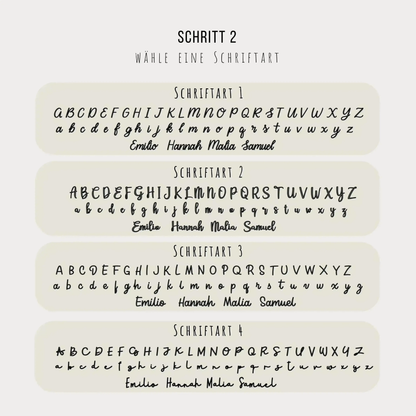 SCHRITT 2
WÄHLE EINE SCHRIFTART
SCHRIFTART 1
ABCDEFGHIJKLMNOPQRSTUVWXYZ
abcdefghijklmnopqrstuvwxyz
Emilio Hannah Malia Samuel
SCHRIFTART 2
ABCDEFGHIJKLMNOPQRSTUVWXYZ
abcdefghijklmnopqrstuvwxyz
Emilio Hannah Malia Samuel
SCHRIFTART 3
ABCDEFGHIJKLMNOPQRSTUVWXYZ
abcdefghijklmnopqrstuvwxyz
Emilio Hannah Malia Samuel
SCHRIFTART 4
ABCDEFGHIJKLMNOPQRSTUVWXYZ
abcdefghijklmnopqrstuvwxyz
Emilio Hannah Malia Samuel